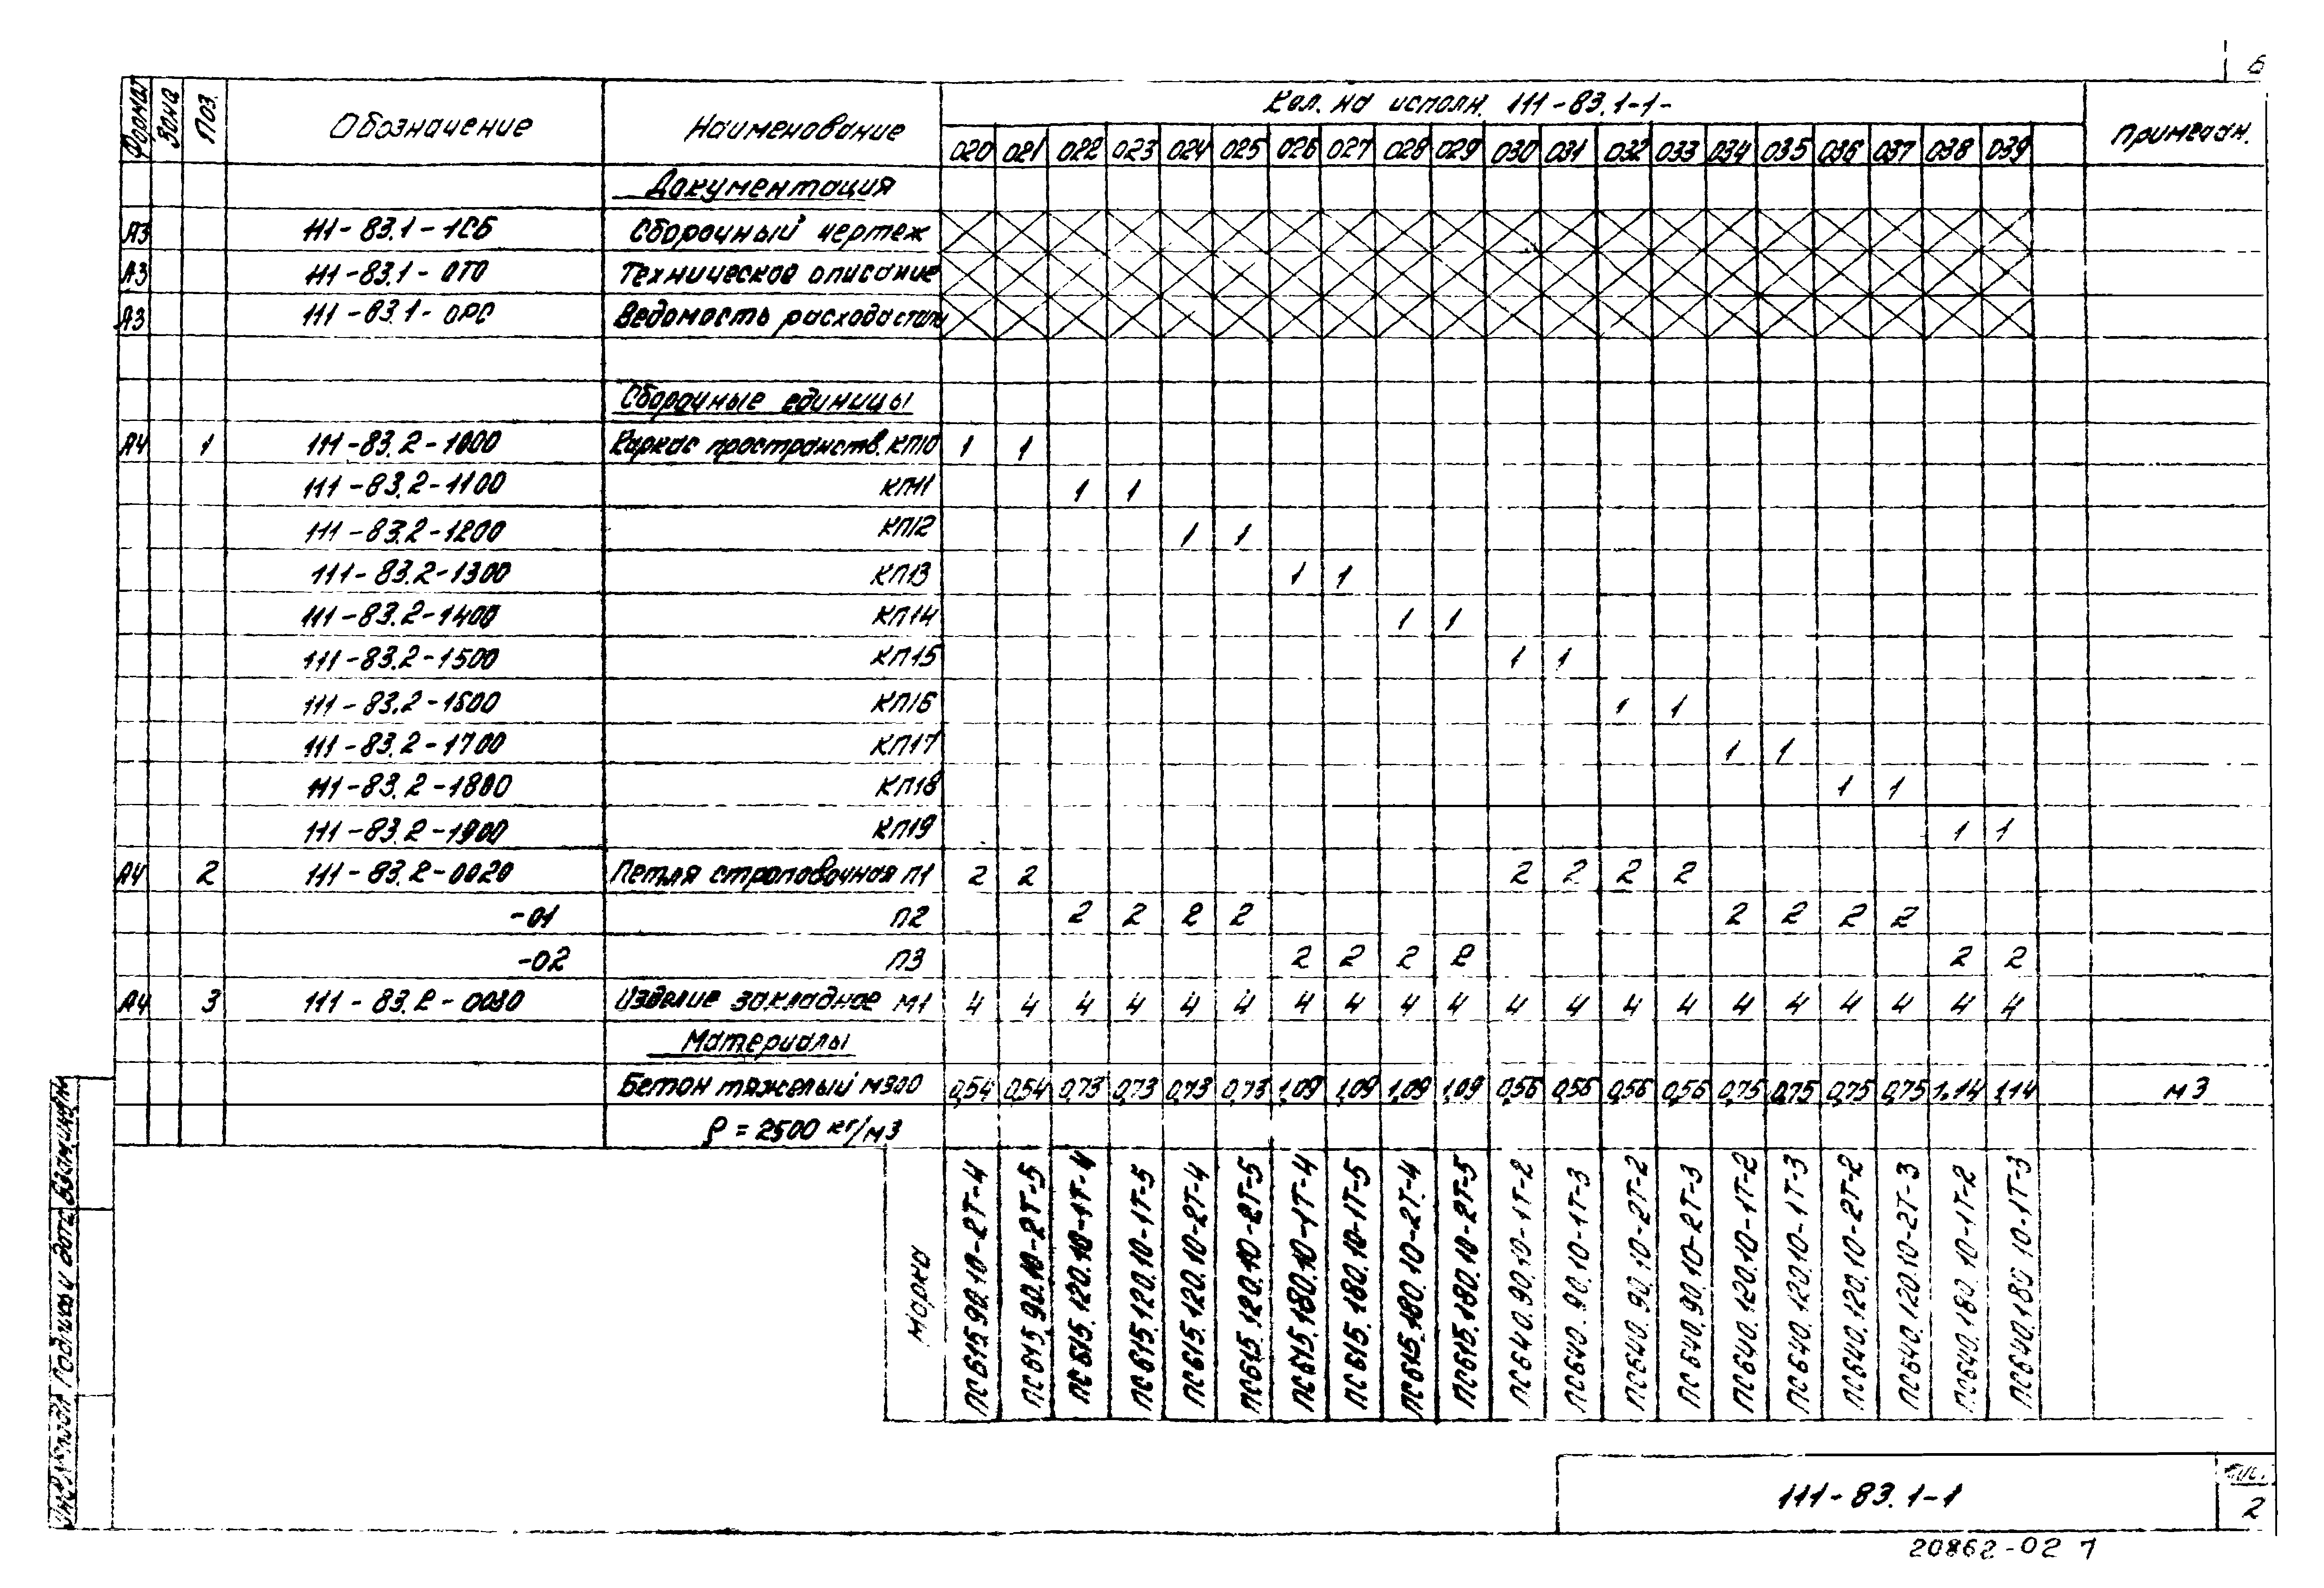 6
Формат Зона Поз. Обозначение Наименование Кол. на исполн. 111-83.1-1- Примечан.
020 021 022 023 024 025 026 027 028 029 030 031 032 033 034 035 036 037 038 039
Документация
А3 111-83.1-1СБ Сборочный чертеж
А3 111-83.1-0ТО Техническое описание
А3 111-83.1-0РС Ведомость расхода стали
Сборочные единицы
А4 1 111-83.2-1000 Каркас пространств. КП10 1 1
111-83.2-1100 КП11 1 1
111-83.2-1200 КП12 1 1
111-83.2-1300 КП13 1 1
111-83.2-1400 КП14 1 1
111-83.2-1500 КП15 1 1
111-83.2-1600 КП16 1 1
111-83.2-1700 КП17 1 1
111-83.2-1800 КП18 1 1
111-83.2-1900 КП19 1 1
А4 2 111-83.2-0020 Петля строповочная П1 2 2 2 2 2 2
-01 П2 2 2 2 2 2 2 2 2
-02 П3 2 2 2 2 2 2
А4 3 111-83.2-0030 Изделие закладное М1 4 4 4 4 4 4 4 4 4 4 4 4 4 4 4 4 4 4 4 4
Материалы
Бетон тяжелый М300 0,54 0,54 0,73 0,73 0,73 0,73 1,09 1,09 1,09 1,09 0,56 0,56 0,56 0,56 0,75 0,75 0,75 0,75 1,14 1,14 м3
ρ = 2500 кг/м3
Марка
ПС615.90.10-2Т-4
ПС615.90.10-2Т-5
ПС615.120.10-1Т-4
ПС615.120.10-1Т-5
ПС615.120.10-2Т-4
ПС615.120.10-2Т-5
ПС615.180.10-1Т-4
ПС615.180.10-1Т-5
ПС615.180.10-2Т-4
ПС615.180.10-2Т-5
ПС640.90.10-1Т-2
ПС640.90.10-1Т-3
ПС640.90.10-2Т-2
ПС640.90.10-2Т-3
ПС640.120.10-1Т-2
ПС640.120.10-1Т-3
ПС640.120.10-2Т-2
ПС640.120.10-2Т-3
ПС640.180.10-1Т-2
ПС640.180.10-1Т-3
Взам.инв.№
Подпись и дата
Инв.№ подл.
111-83.1-1
Лист
2
20862-02 7